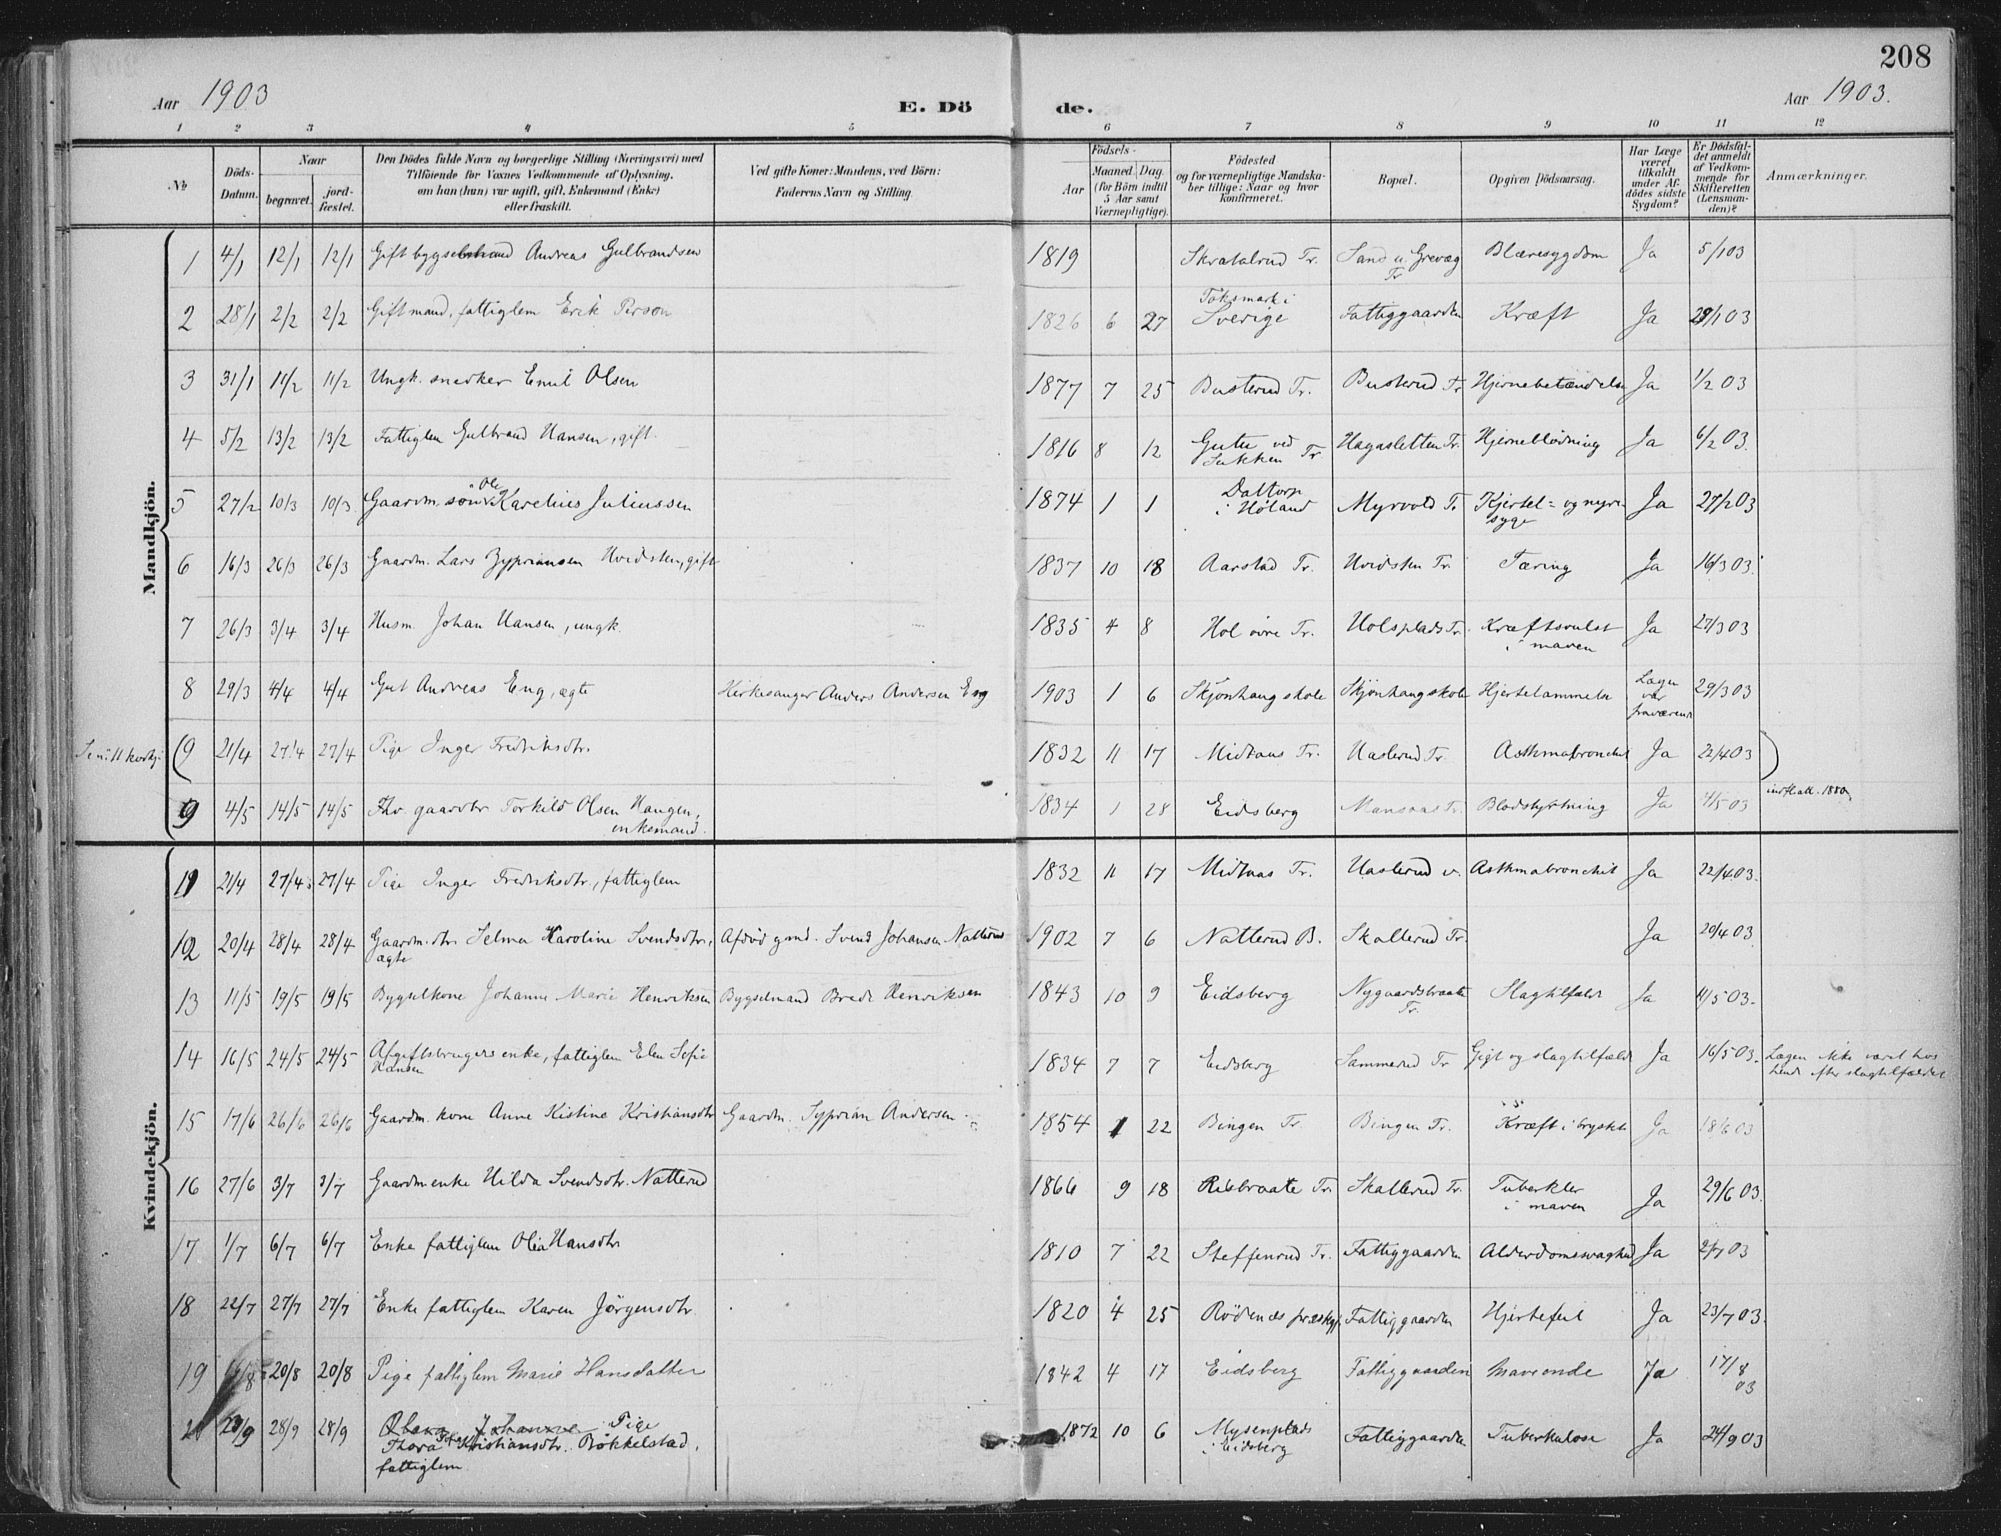 208
Aar 1903 E. Dö de. Aar 1903.
1 2 3 4 5 6 7 8 9 10 11 12
No
Döds-Datum.
Naar
begravet.
jordfæstet.
Den Dödes fulde Navn og borgerlige Stilling (Næringsvei) med
Tilföiende for Voxnes Vedkommende af Oplysning,
om han (hun) var ugift, gift, Enkemand (Enke)
eller fraskilt.
Ved gifte Koner: Mandens, ved Börn:
Faderens Navn og Stilling.
Födsels-
Aar
Maaned. Dag.
(for Börn indtil
5 Aar samt
Værnepligtige).
Födested
og for værnepligtige Mandskaber tillige: Naar og hvor
konfirmeret.
Bopæl.
Opgiven Dödsaarsag.
Har Læge
været
tilkaldt
under Afdödes sidste
Sygdom?
Er Dödsfaldet anmeldt
af Vedkommende for
Skifteretten
(Lensmanden)?
Anmærkninger.
Mandkjön.
1 4/1 12/1 12/1 Gift bygselmand Andreas Gulbrandsen 1819 Skratalrud Tr. Sand u. Grevæg Tr. Blæresygdom Ja 5/1 03
2 28/1 2/2 2/2 Gift mand, fattiglem Erik Person 1826 6 27 Toksmark i Sverige Fattiggaarden Kræft Ja 29/1 03
3 31/1 11/2 11/2 Ungk. snedker Emil Olsen 1877 7 25 Busterud Tr. Busterud Tr Hjernebetændelse Ja 1/2 03
4 5/2 13/2 13/2 Fattiglem Gulbrand Hansen, gift. 1816 8 12 Gutu ved Sukken Tr Hagasletten Tr. Hjerneblödning Ja 6/2 03.
5 27/2 10/3 10/3 Gaardm. sön Ole Karelius Juliussen 1874 1 1 Daltorp i Höland Myrvold Tr. Kjertel= og nyresyge Ja 27/2 03
6 16/3 26/3 26/3 Gaardm. Lars Zypriansen Hvidsten, gift 1837 10 18 Aarstad Tr. Hvidsten Tr. Tæring Ja 16/3 03.
7 26/3 3/4 3/4 Husm. Johan Hansen, ungk. 1835 4 8 Hol övre Tr. Holsplads Tr. Kræftsvulst i maven Ja 27/3 03
8 29/3 4/4 4/4 Gut Andreas Eng, ægte Kirkesanger Anders Andersen Eng 1903 1 6 Skjönhaug skole Skjönhaug skole Hjertelammelse Lægen var fraværende 29/3 03
(9 21/4 27/4 27/4 Pige Inger Fredriksdtr. 1832 11 17 Midtaas Tr. Haslerud Tr. Asthmabronchit Ja 22/4 03
9 4/5 14/5 14/5 Fhv. gaardbr Torkild Olsen Haugen, enkemand. 1834 1 28 Eidsberg Mansaas Tr. Blodstyrtning Ja 4/5 03 indflytt. 1880
Kvindekjön.
11 21/4 27/4 27/4 Pige Inger Fredriksdtr., fattiglem 1832 11 17 Midtaas Tr. Haslerud v. Asthmabronchit Ja 22/4 03.
12 20/4 28/4 28/4 Gaardm. dtr. Selma Karoline Svendsdtr., ægte Afdöd gmd. Svend Johansen Natterud 1902 7 6 Natterud B. Skallerud Tr. Ja 20/4 03
13 11/5 19/5 19/5 Bygselkone Johanne Marie Henriksen Bygselmand Brede Henriksen 1843 10 9 Eidsberg Nygaardsbraate Tr. Slagtilfælde Ja 11/5 03.
14 16/5 24/5 24/5 Afgiftsbrugers enke, fattiglem Elen Sofie Hansen 1834 7 7 Eidsberg Sammerud Tr Gigt og slagtilfælde Ja 16/5 03. Lægen ikke været hos hende efter slagtilfældet
15 17/6 26/6 26/6 Gaardm. kone Anne Kistine Kristiansdtr Gaardm. Syprian Andersen 1854 1 22 Bingen Tr. Bingen Tr. Kræft i brystet Ja 18/6 03
16 27/6 3/7 3/7 Gaardm enke Hilda Svendsdtr. Natterud 1866 9 18 Risbraate Tr. Skallerud Tr. Tuberkler i maven Ja 29/6 03.
17 1/7 6/7 6/7 Enke fattiglem Olia Hansdtr 1810 7 22 Steffenrud Tr. Fattiggaarden Alderdomssvaghed Ja 2/7 03
18 22/7 27/7 27/7 Enke fattiglem Karen Jörgensdtr. 1820 4 25 Rödenæs præstgj. Fattiggaarden Hjertefeil Ja 23/7 03.
19 20/8 20/8 Pige fattiglem Marie Hansdatter 1842 4 17 Eidsberg Fattiggaarden Maveonde Ja 17/8 03
28/9 28/9 Pige Thora Kristiansdtr. Bökkelstad, fattiglem 1872 10 6 Mysenplads i Eidsberg Fattiggaarden Tuberkulose Ja 24/9 03